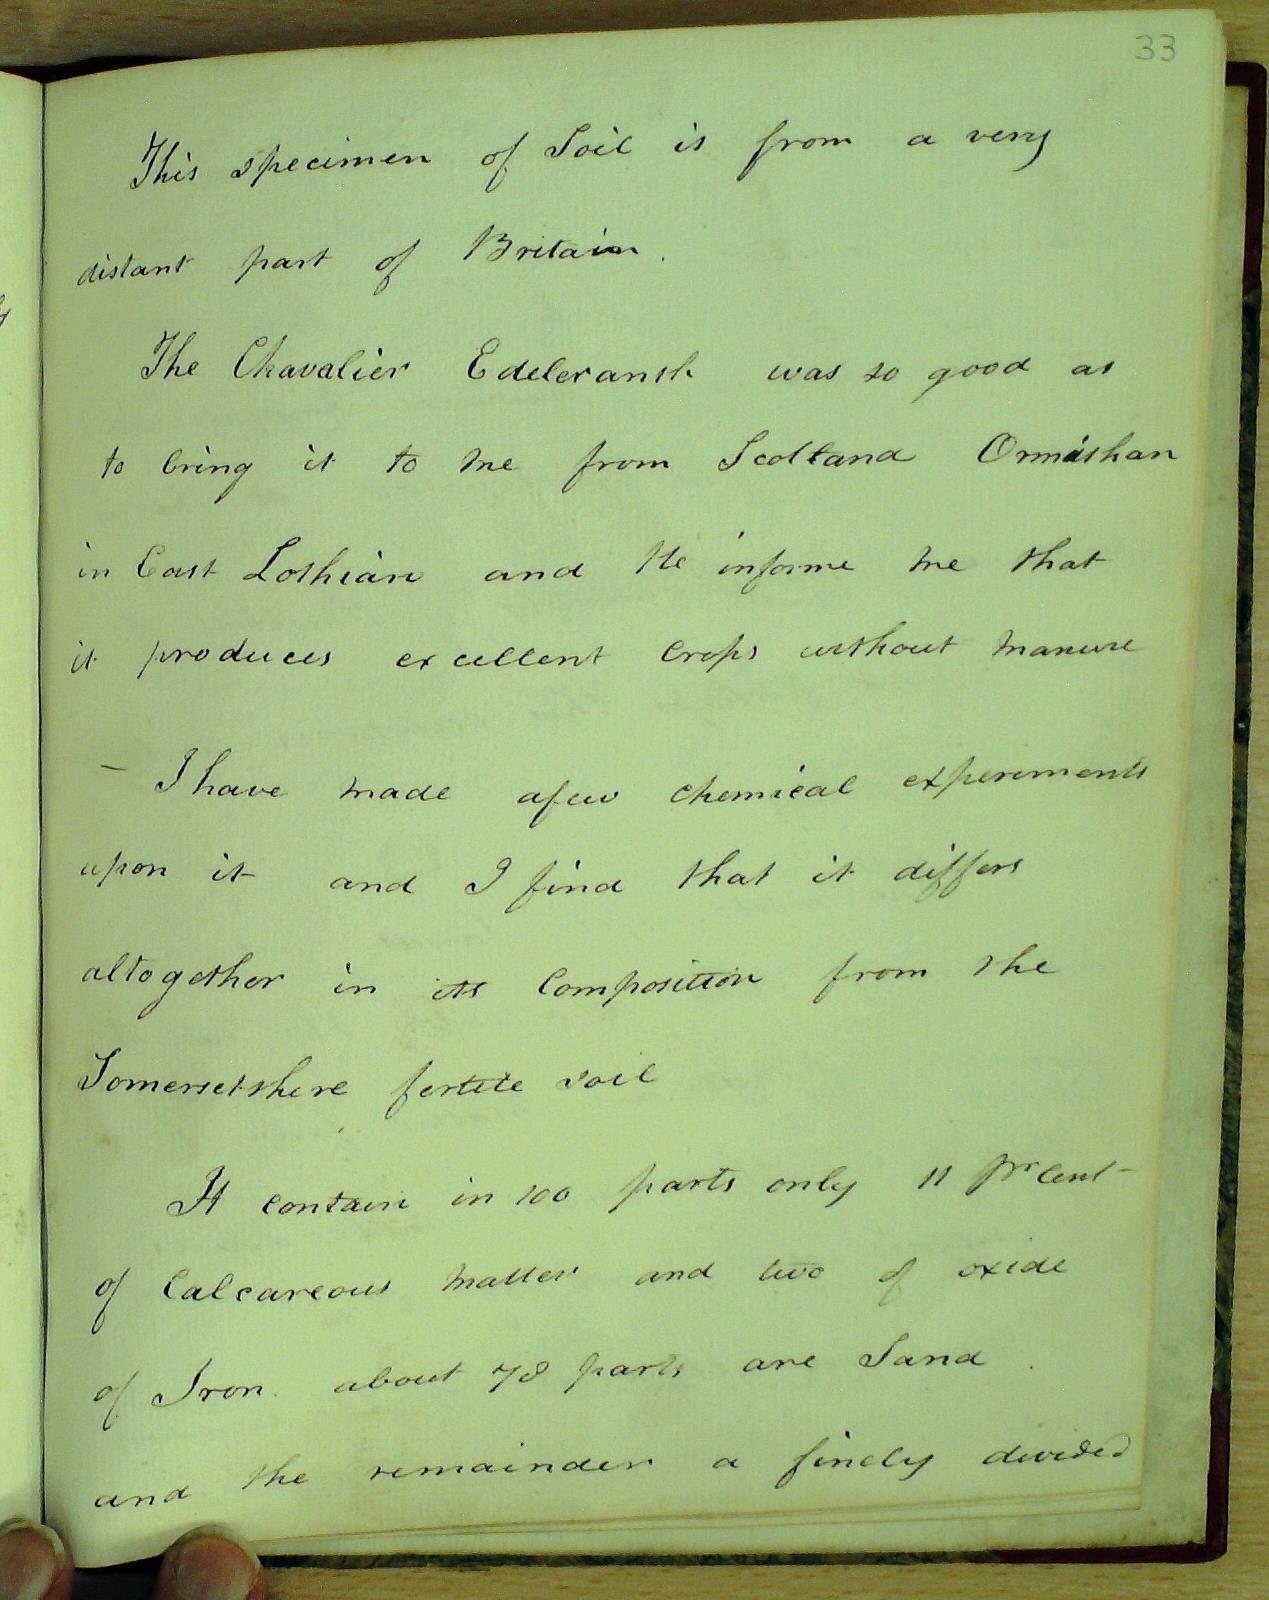 33
This specimen of Soil is from a very
distant part of Britain.
The Chavalier Edelcransh was so good as
to bring it to me from Scotland Ormishan
in East Lothian and He informe me that
it produces excellent Crops without manure
– I have made afew chemical experements
upon it and I find that it differs
altogether in its Composition from the
Somersetshere fertile soil
It contain in 100 parts only 11 pr Cent
of Calcareous matter and two of oxide
of Iron. about 78 parts are Sand.
and the remainder a finely divided